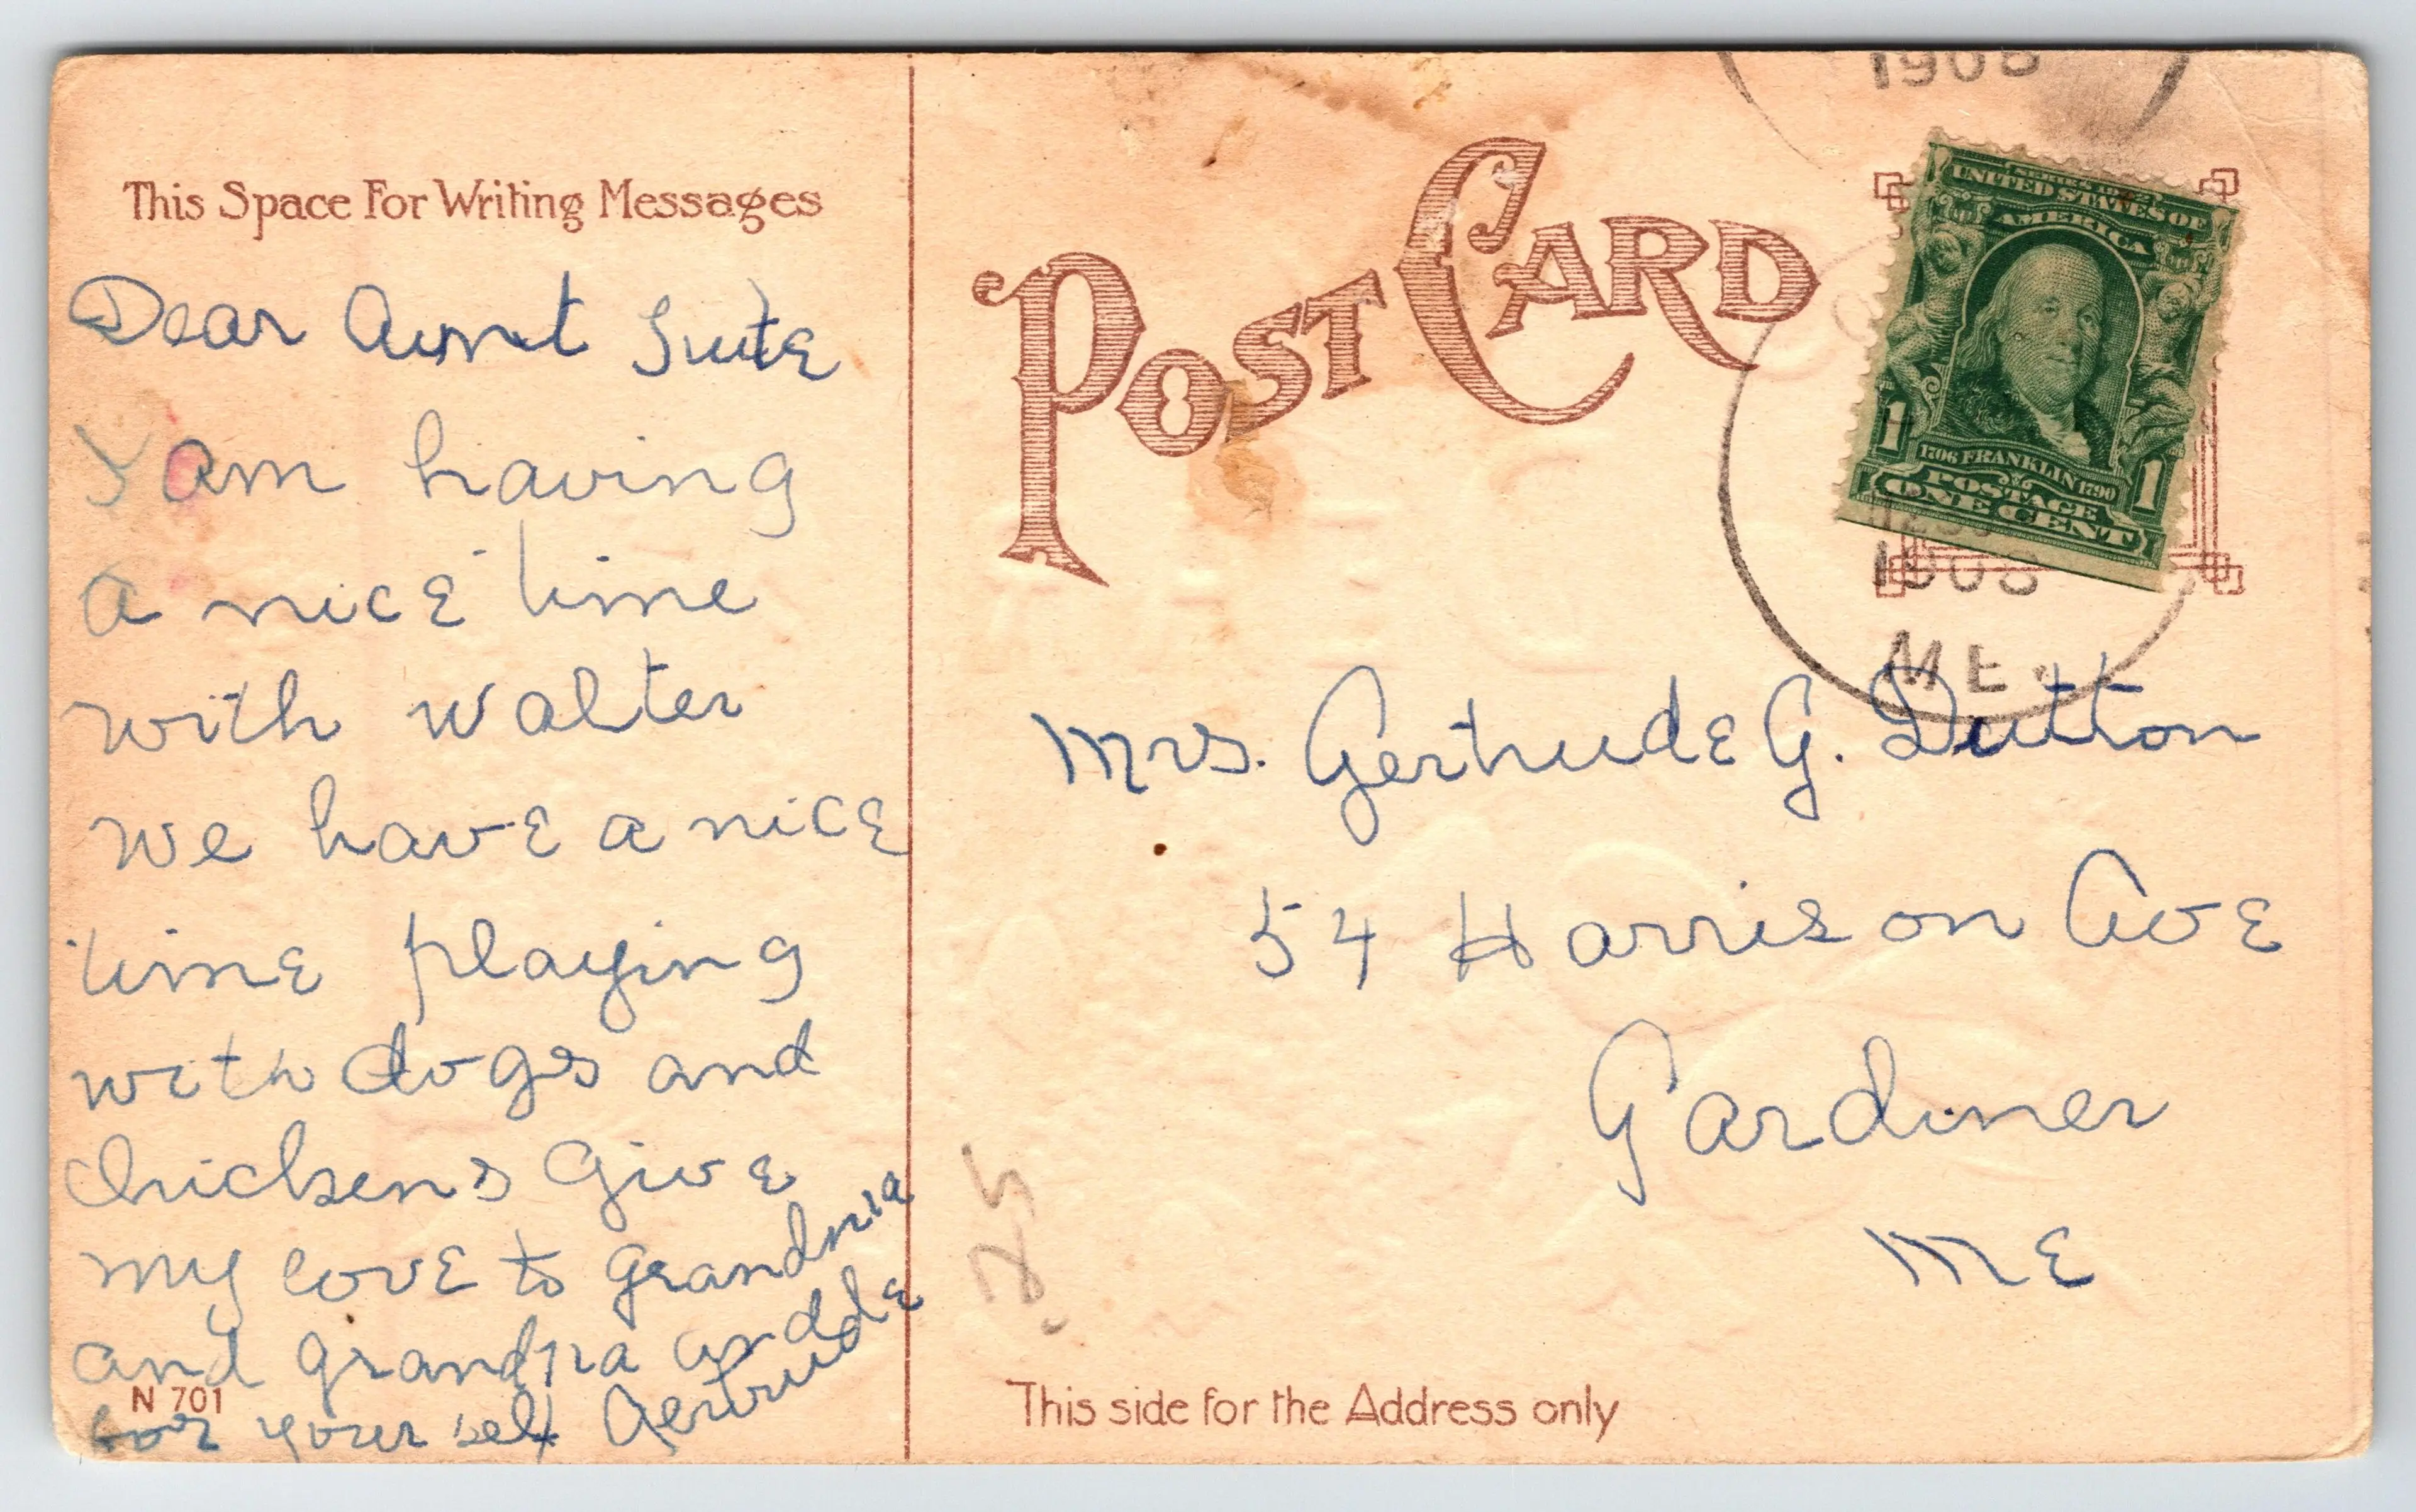 This Space For Writing Messages
Dear Aunt Sute
I am having
a nice time
with walter
we have a nice
time playing
with dogs and
chickens Give
my love to grandma
and grandpa and
for your self Gertrude
N 701
POST CARD
1908
SERIES 1902
UNITED STATES OF
AMERICA
1 1
1706 FRANKLIN 1790
POSTAGE
ONE CENT
1908
ME.
Mrs. Gertrude G. Dutton
54 Harrison Ave
Gardiner
ME
This side for the Address only